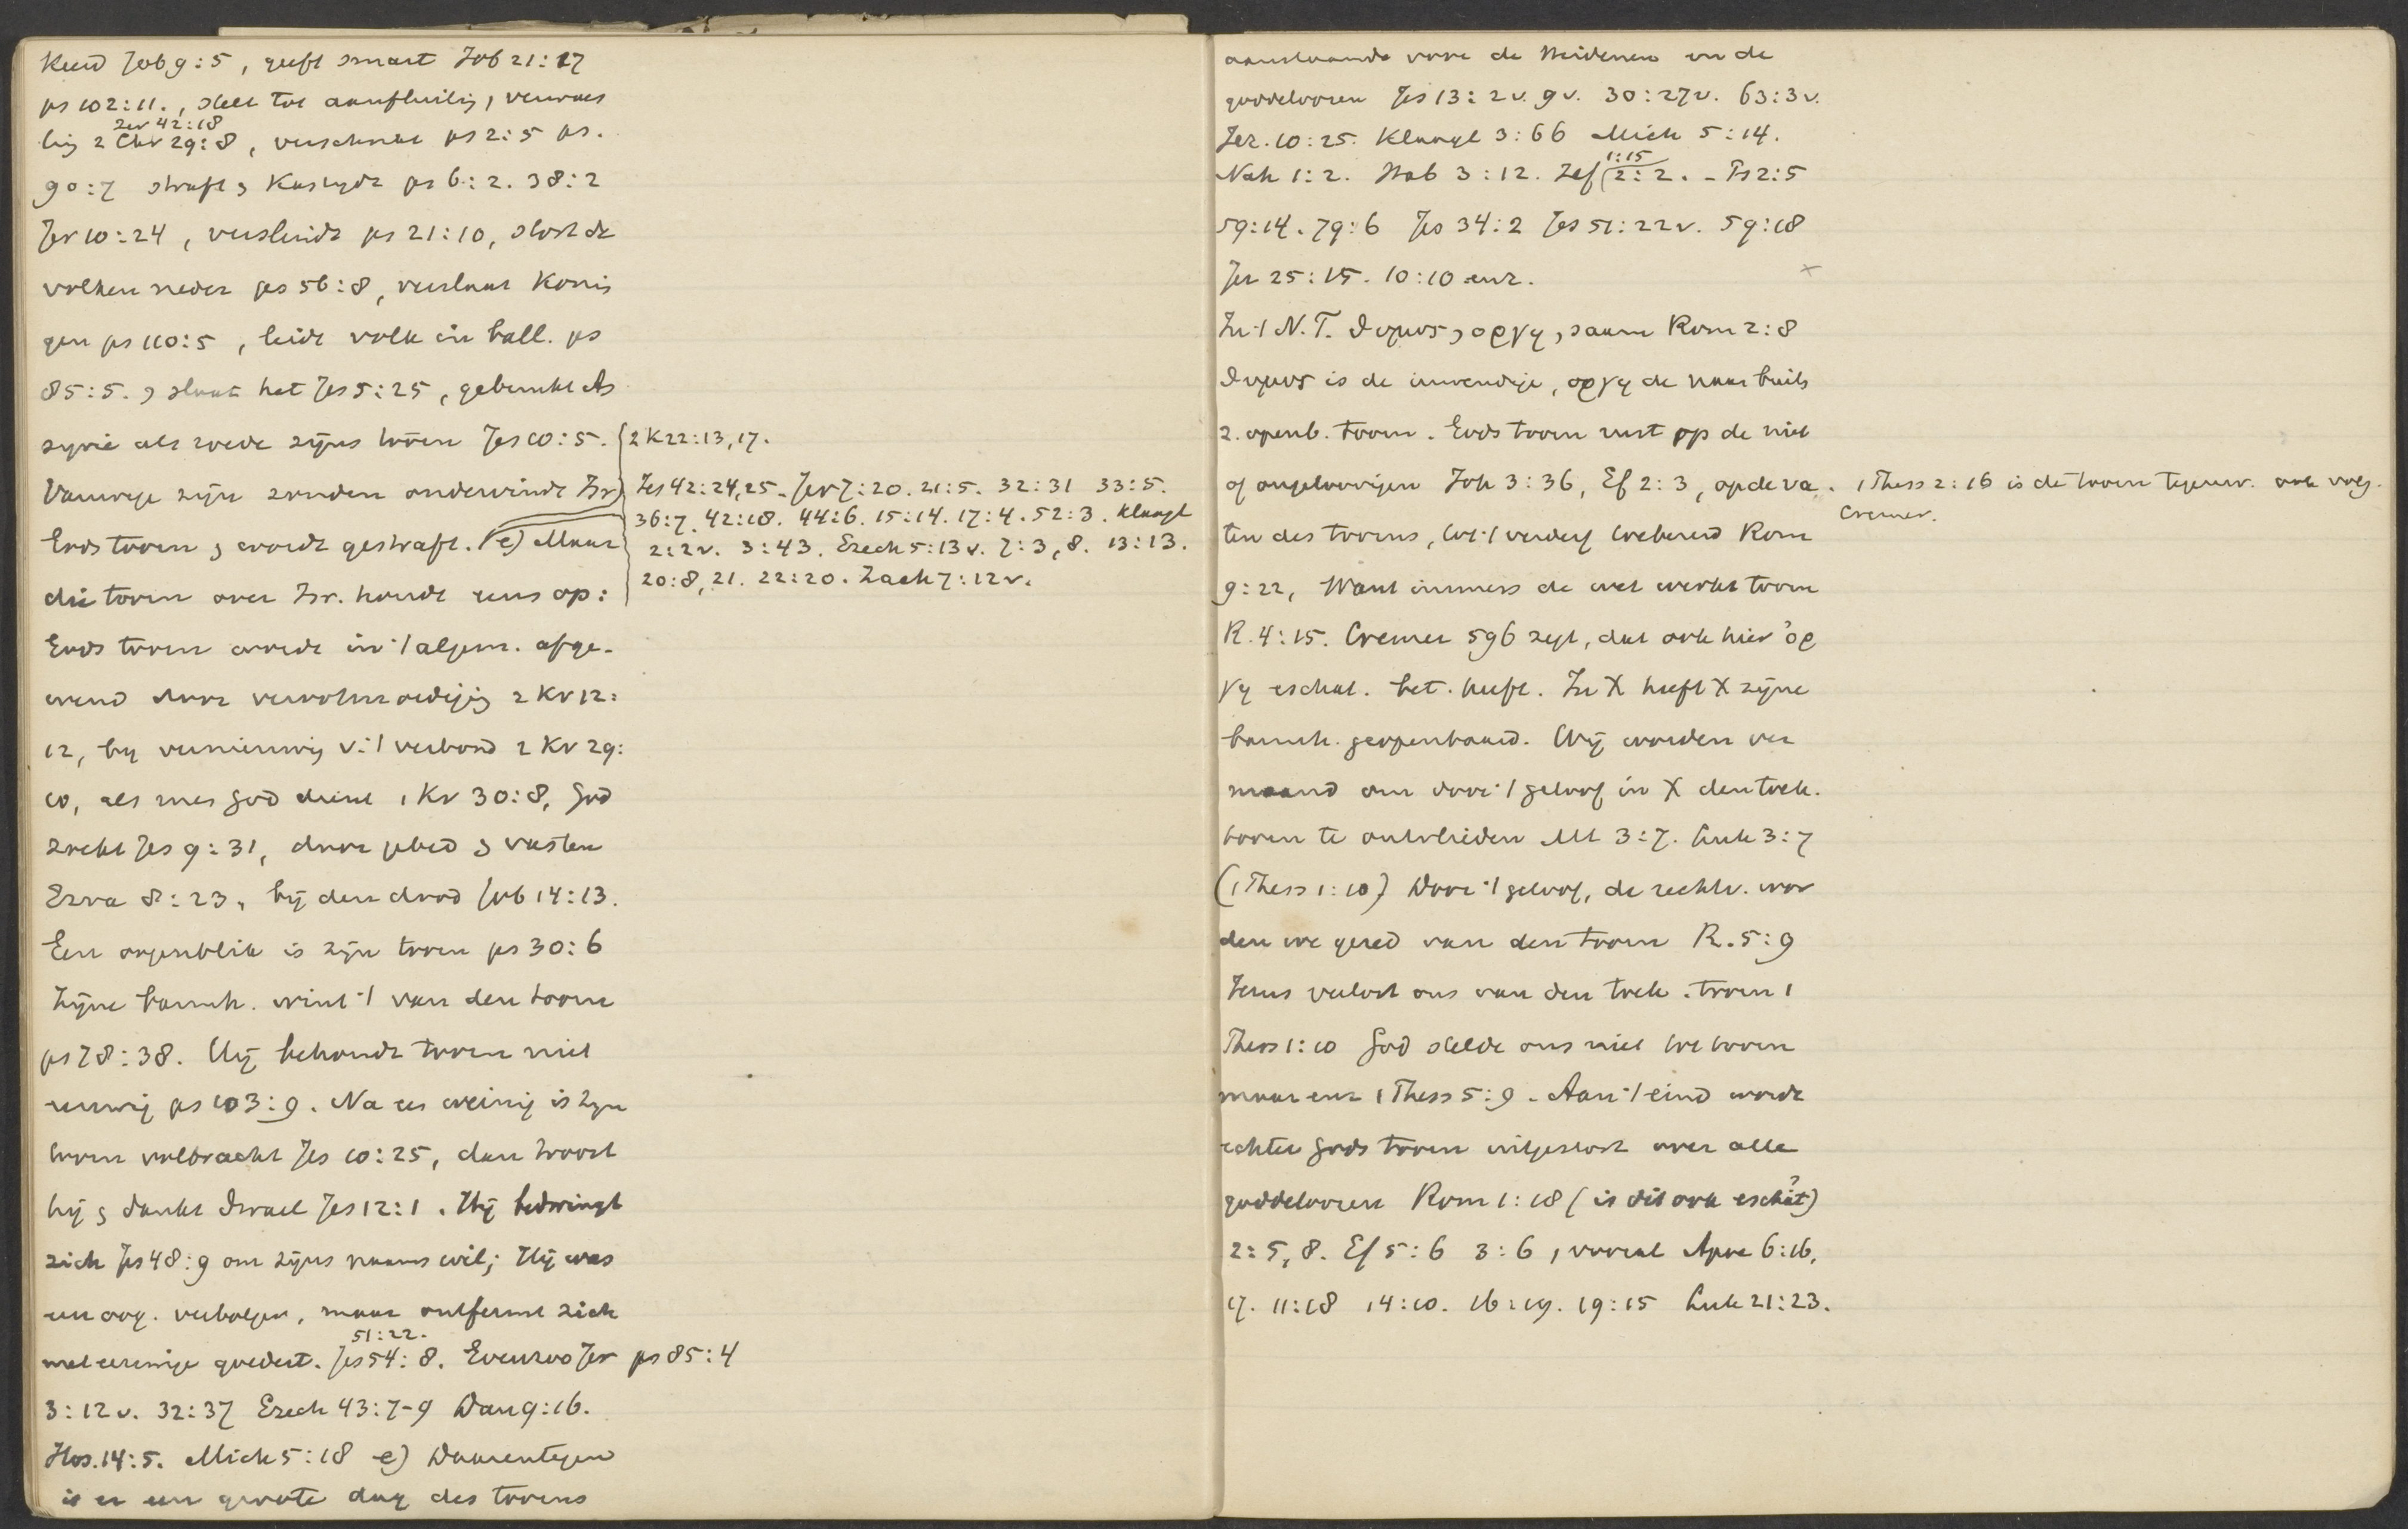 keerd Job 9:5, geeft smart Job 21:17
ps 102:11., stelt tot aanfluitig, verwoes
Jer 42:18
tig 2 Chr 29:8, verschrikt ps 2:5 ps.
90:7 straft & kastydt ps 6:2. 38:2
Jer 10:24, verslindt ps 21:10, stort de
volken neder ps 56:8, verslaat konin
gen ps 110:5, leidt volk in ball. ps
85:5. & slaat het Jes 5:25, gebruikt As
syrië als roede zijns toorn Jes 10:5.
Vanwege zijn zonden ondervindt Isr
Gods toorn & wordt gestraft. (e) Maar
die toorn over Isr. houdt eens op:
Gods toorn wordt in 't algem. afge-
wend door verootmoedigig 2 Kr 12:
12, by vernieuwig v. 't verbond 2 Kr 29:
10, als men God dient 2 Kr 30:8, God
zoekt Jes 9:31, door gebed & vasten
Ezra 8:23, bij den dood Job 14:13.
Een oogenblik is zijn toorn ps 30:6
Zijne barmh. wint 't van den toorn
ps 78:38. Hij behoudt toorn niet
eeuwig ps 103:9. Na een weinig is zyn
toorn volbracht Jes 10:25, dan troost
hij & dankt Israel Jes 12:1. Hij bedwingt
zich Jes 48:9 om zijns naams wil; Hij was
een oog. verbolgen, maar ontfermt zich
51:22.
met eeuwige goedert. Jes 54:8. Evenzoo Jer ps 85:4
3:12 v. 32:37 Ezech 43:7-9 Dan 9:16.
Hos. 14:5. Mich 5:18 e) Daarentegen
is er een groote dag des toorns
2 K 22:13, 17.
Jes 42:24, 25. Jer 7:20. 21:5. 32:31 33:5.
36:7. 42:18. 44:6. 15:14. 17:4. 52:3. Klaagl
2:2 v. 3:43. Ezech 5:13 v. 7:3, 8. 13:13.
20:8, 21. 22:20. Zach 7:12 v.
aanstaande voor de Heidenen en de
goddeloozen Jes 13:2 v. 9 v. 30:27 v. 63:3 v.
Jer. 10:25. Klaagl 3:66 Mich 5:14.
1:15
Nah 1:2. Hab 3:12. Zef 2:2. - Ps 2:5
59:14. 79:6 Jes 34:2 Jes 51:22 v. 59:18
Jer 25:15. 10:10 enz. x
In 't N.T. θυμος, οργη, saam Rom 2:8
θυμος is de inwendige, οργη de naar buit
z. openb. toorn. Gods toorn rust op de niet
of ongeloovigen Joh 3:36, Ef 2:3, op de va
ten des toorns, tot 't verderf toebereid Rom
9:22, Want immers de wet werkt toorn
R. 4:15. Cremer 596 zegt, dat ook hier ὀρ
γη eschat. bet. heeft. In X heeft X zijne
barmh. geopenbaard. Wij worden ver
maand om door 't geloof in X den toek.
toorn te ontvlieden Mt 3:7. Luk 3:7
(1 Thess 1:10) Door 't geloof, de rechtv. wor
den we gered van den toorn R. 5:9
Jezus verlost ons van den toek. toorn 1
Thess 1:10 God stelde ons niet tot toorn
maar enz 1 Thess 5:9. Aan 't eind wordt
echter Gods toorn uitgestort over alle
goddeloozen Rom 1:18 (is dit ook eschat?)
2:5, 8. Ef 5:6 3:6, vooral Apoc 6:16,
17. 11:18 14:10. 16:19. 19:15 Luk 21:23.
1 Thess 2:16 is de toorn tegenw. ook volg.
Cremer.